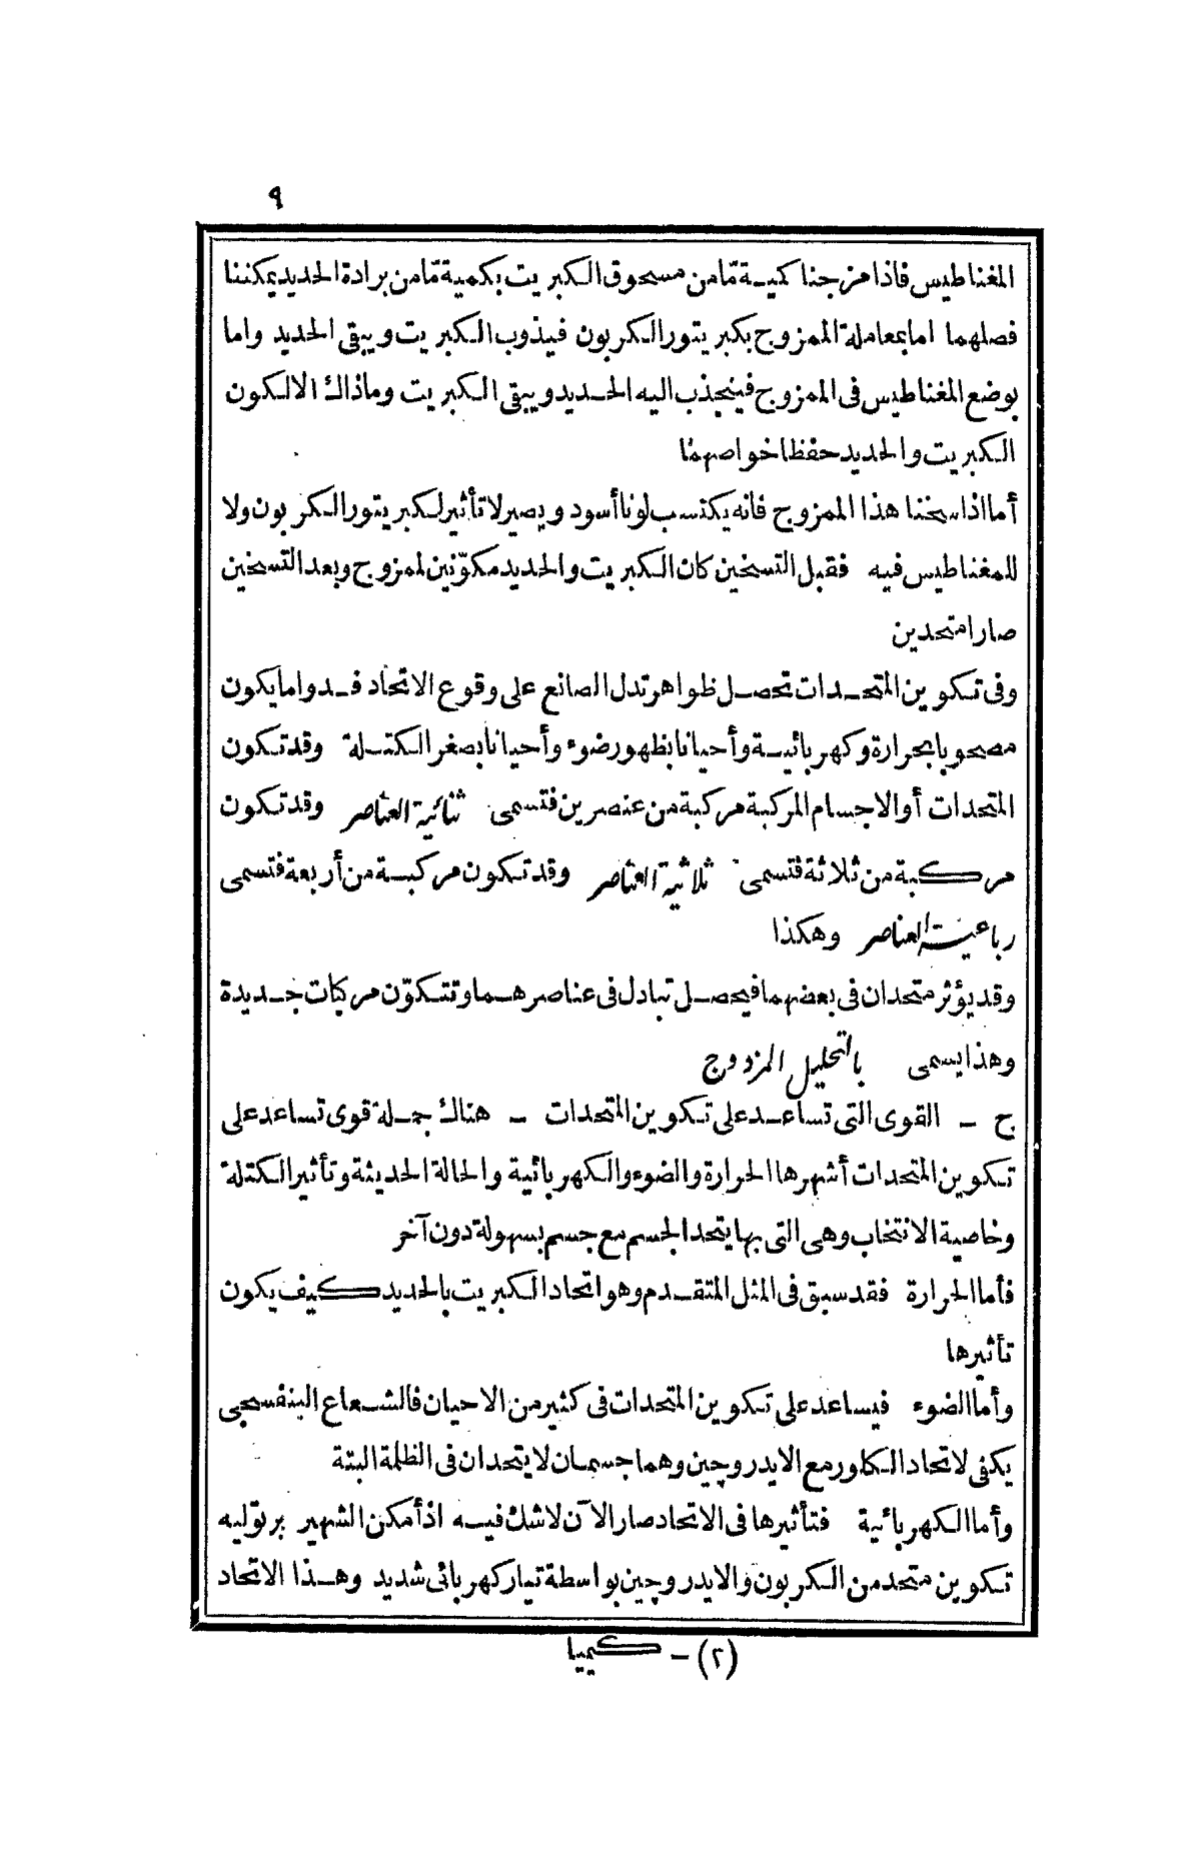 ٩
المغناطيس فاذا مزجنا كمية مّا من مسحوق الكبريت بكمية مّا من برادة الحديد يمكننا
فصلهما اما بمعاملة الممزوج بكبريتور الكربون فيذوب الكبريت ويبقى الحديد واما
بوضع المغناطيس فى الممزوج فينجذب اليه الحديد ويبقى الكبريت وماذاك الا لكون
الكبريت والحديد حفظا خواصهما
أما اذا سخنا هذا الممزوج فانه يكتسب لونا أسود ويصير لا تأثير لكبريتور الكربون ولا
للمغناطيس فيه فقبل التسخين كان الكبريت والحديد مكوّنين لممزوج وبعد التسخين
صارا متحدين
وفى تكوين المتحدات تحصل ظواهر تدل الصانع على وقوع الاتحاد فدواما يكون
مصحوبا بحرارة وكهربائية وأحيانا بظهور ضوء وأحيانا بصغر الكتلة وقد تكون
المتحدات أو الاجسام المركبة مركبة من عنصرين فتسمى ثنائية العناصر وقد تكون
مركبة من ثلاثة فتسمى ثلاثية العناصر وقد تكون مركبة من أربعة فتسمى
رباعية العناصر وهكذا
وقد يؤثر متحدان فى بعضهما فيحصل تبادل فى عناصرهما وتتكوّن مركبات جديدة
وهذا يسمى بالتحليل المزدوج
ح – القوى التى تساعد على تكوين المتحدات – هناك جملة قوى تساعد على
تكوين المتحدات أشهرها الحرارة والضوء والكهربائية والحالة الحديثة وتأثير الكتلة
وخاصية الانتخاب وهى التى بها يتحد الجسم مع جسم بسهولة دون آخر
فأما الحرارة فقد سبق فى المثل المتقدم وهو اتحاد الكبريت بالحديد كيف يكون
تأثيرها
وأما الضوء فيساعد على تكوين المتحدات فى كثير من الاحيان فالشعاع البنفسجى
يكفى لاتحاد الكلور مع الايدروچين وهما جسمان لا يتحدان فى الظلمة البتة
وأما الكهربائية فتأثيرها فى الاتحاد صار الآن لاشك فيه اذ أمكن الشهير برتوليه
تكوين متحد من الكربون والايدروچين بواسطة تيار كهربائى شديد وهذا الاتحاد
(٢) – كيميا